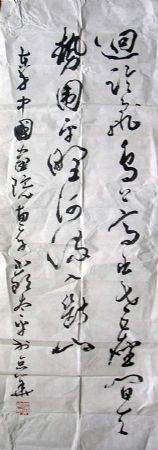 迴臨飛鳥上高出世塵間天
勢圍平野河流入斷山
中國畫院